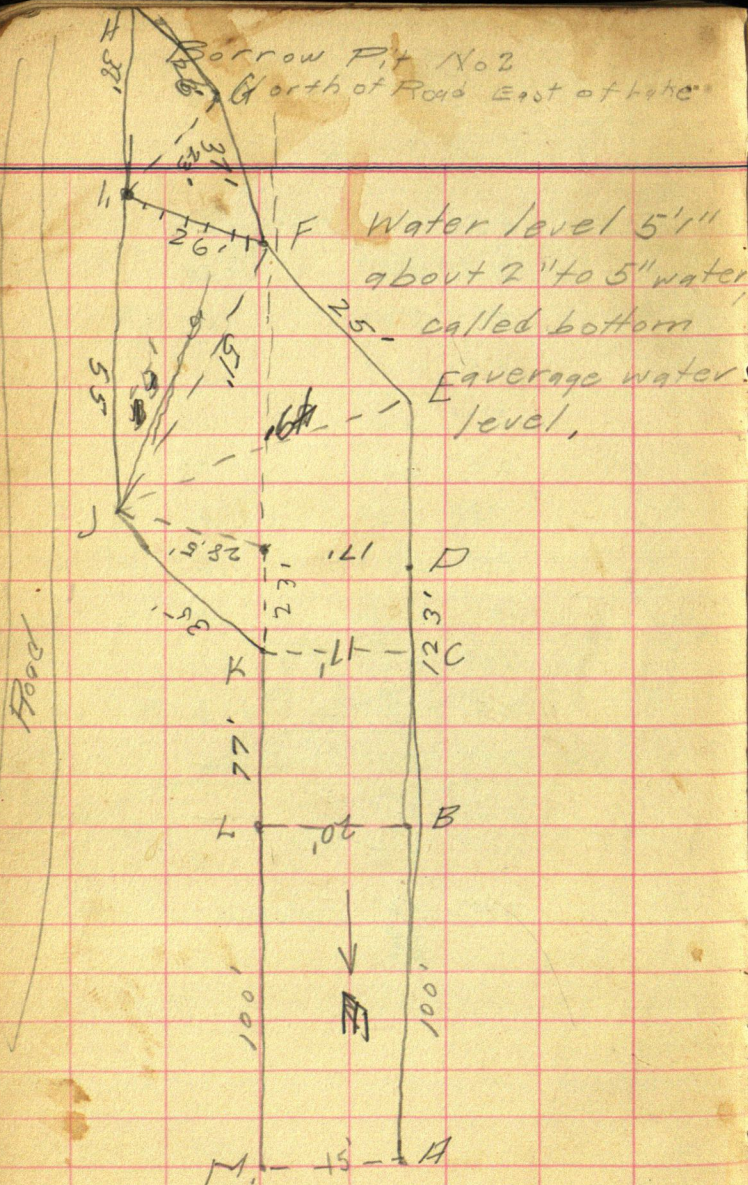 Borrow Pit No2
North of Road East of Lake
Water level 5'1"
about 2" to 5" water,
called bottom
average water
level,
H
38'
26'
G
37'
43'
I
29'
F
25'
51'
55'
E
49'
J
28.5'
17'
D
23'
123'
35'
K
17'
C
Road
77'
L
20'
B
100'
E
100'
M
15'
A